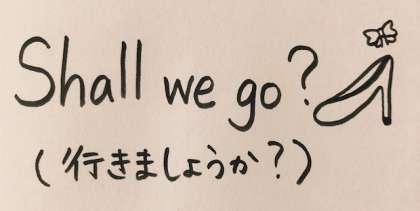 Shall we go?
(行きましょうか?)